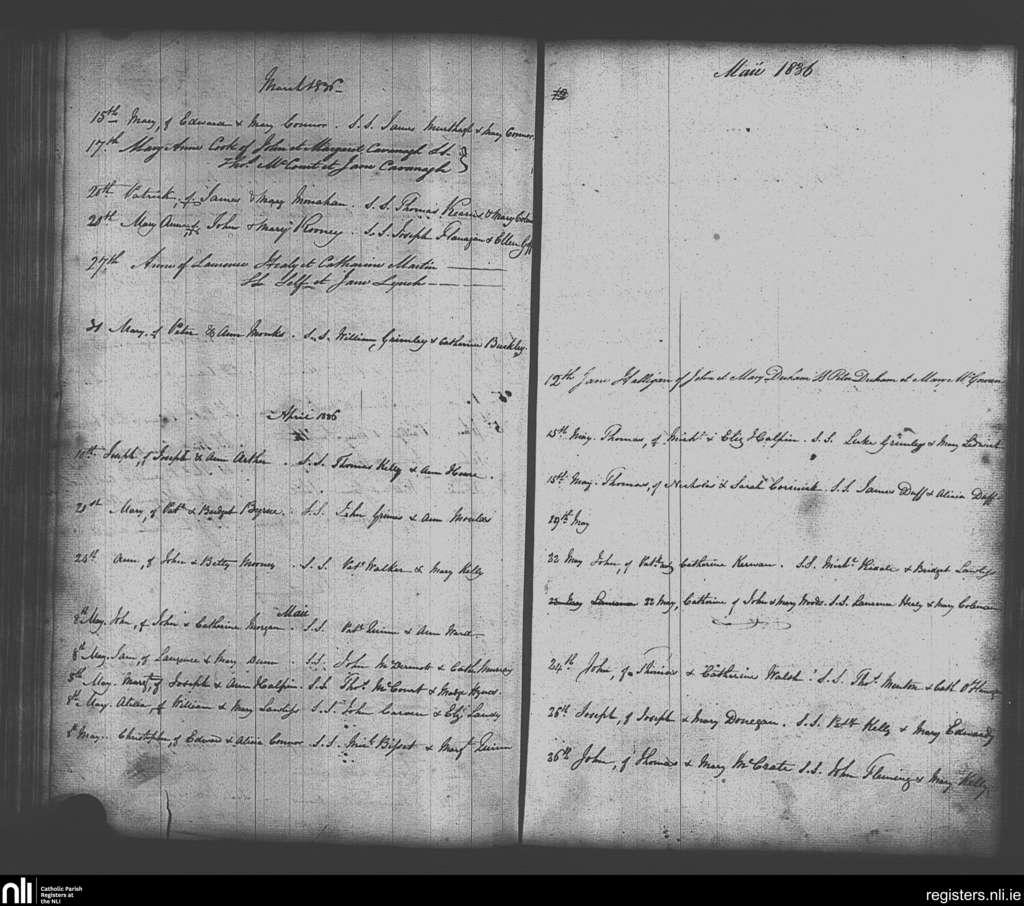 March 1836
15th Mary, of Edward & Mary Connor. S.S. James Murthagh & Mary Connor
17th Mary Anne Cook of John et Margaret Cavanagh Ss.
Thos. McCourt et Jane Cavanagh
20th Patrick, of James & Mary Monahan. S.S. Thomas Kearns & Mary
20th Mary Ann, of John & Mary Rooney. S.S. Joseph Flanagan & Ellen
27th Anne of Laurence Healy et Catharine Martin
Ss Self et Jane Lynch
31 Mary, of Peter & Ann Monks. S.S. William Grimley & Catherine Buckley.
April 1836
10th Joseph, of Joseph & Ann Arthur. S.S. Thomas Kelly & Ann
21st Mary, of Patk & Bridget Byrne. S.S. John Grimes & Ann
23th Ann, of John & Betty Mooney S.S. Patk Walker & Mary Kelly
Maii
8th May. John, of John & Catherine Morgan. S.S. Patk Quinn & Ann Ward
8th May. Jane, of Laurence & Mary Dunn. S.S. John McDermot & Cath. Murray
8th May. Margt, of Joseph & Ann Halpin. S.S. Thos. McCourt & Madge
8th May. Alicia, of William & Mary S.S. John Carven & Eliz Landy
8th May. Christopher, of Edward & Alicia Connor S.S. Michl & Margt Quinn
Maii 1836
12th Jane Halligan of John et Mary Durham Ss Peter Durham et Mary McGowan
15th May. Thomas, of Michl & Eliz Halpin. S.S. Luke Grimley & Mary
15th May. Thomas, of Nicholas & Sarah Cormick. S.S. James Duff & Alicia Duff
19th May
22 May John, of Patk & Catherine Kerwan. S.S. Michl & Bridget
22 May Laurence 22 May, Catherine of John & Mary Woods. S.S. Laurence Healy & Mary Coleman
24th John, of Thomas & Catherine Walsh. S.S. Thos. & Cath
25th Joseph, of Joseph & Mary Donegan. S.S. Patk Kelly & Mary Edwards
26th John, of Thomas & Mary McGrate S.S. John Fleming & Mary Kelly.
nli
Catholic Parish
Registers at
the NLI
registers.nli.ie